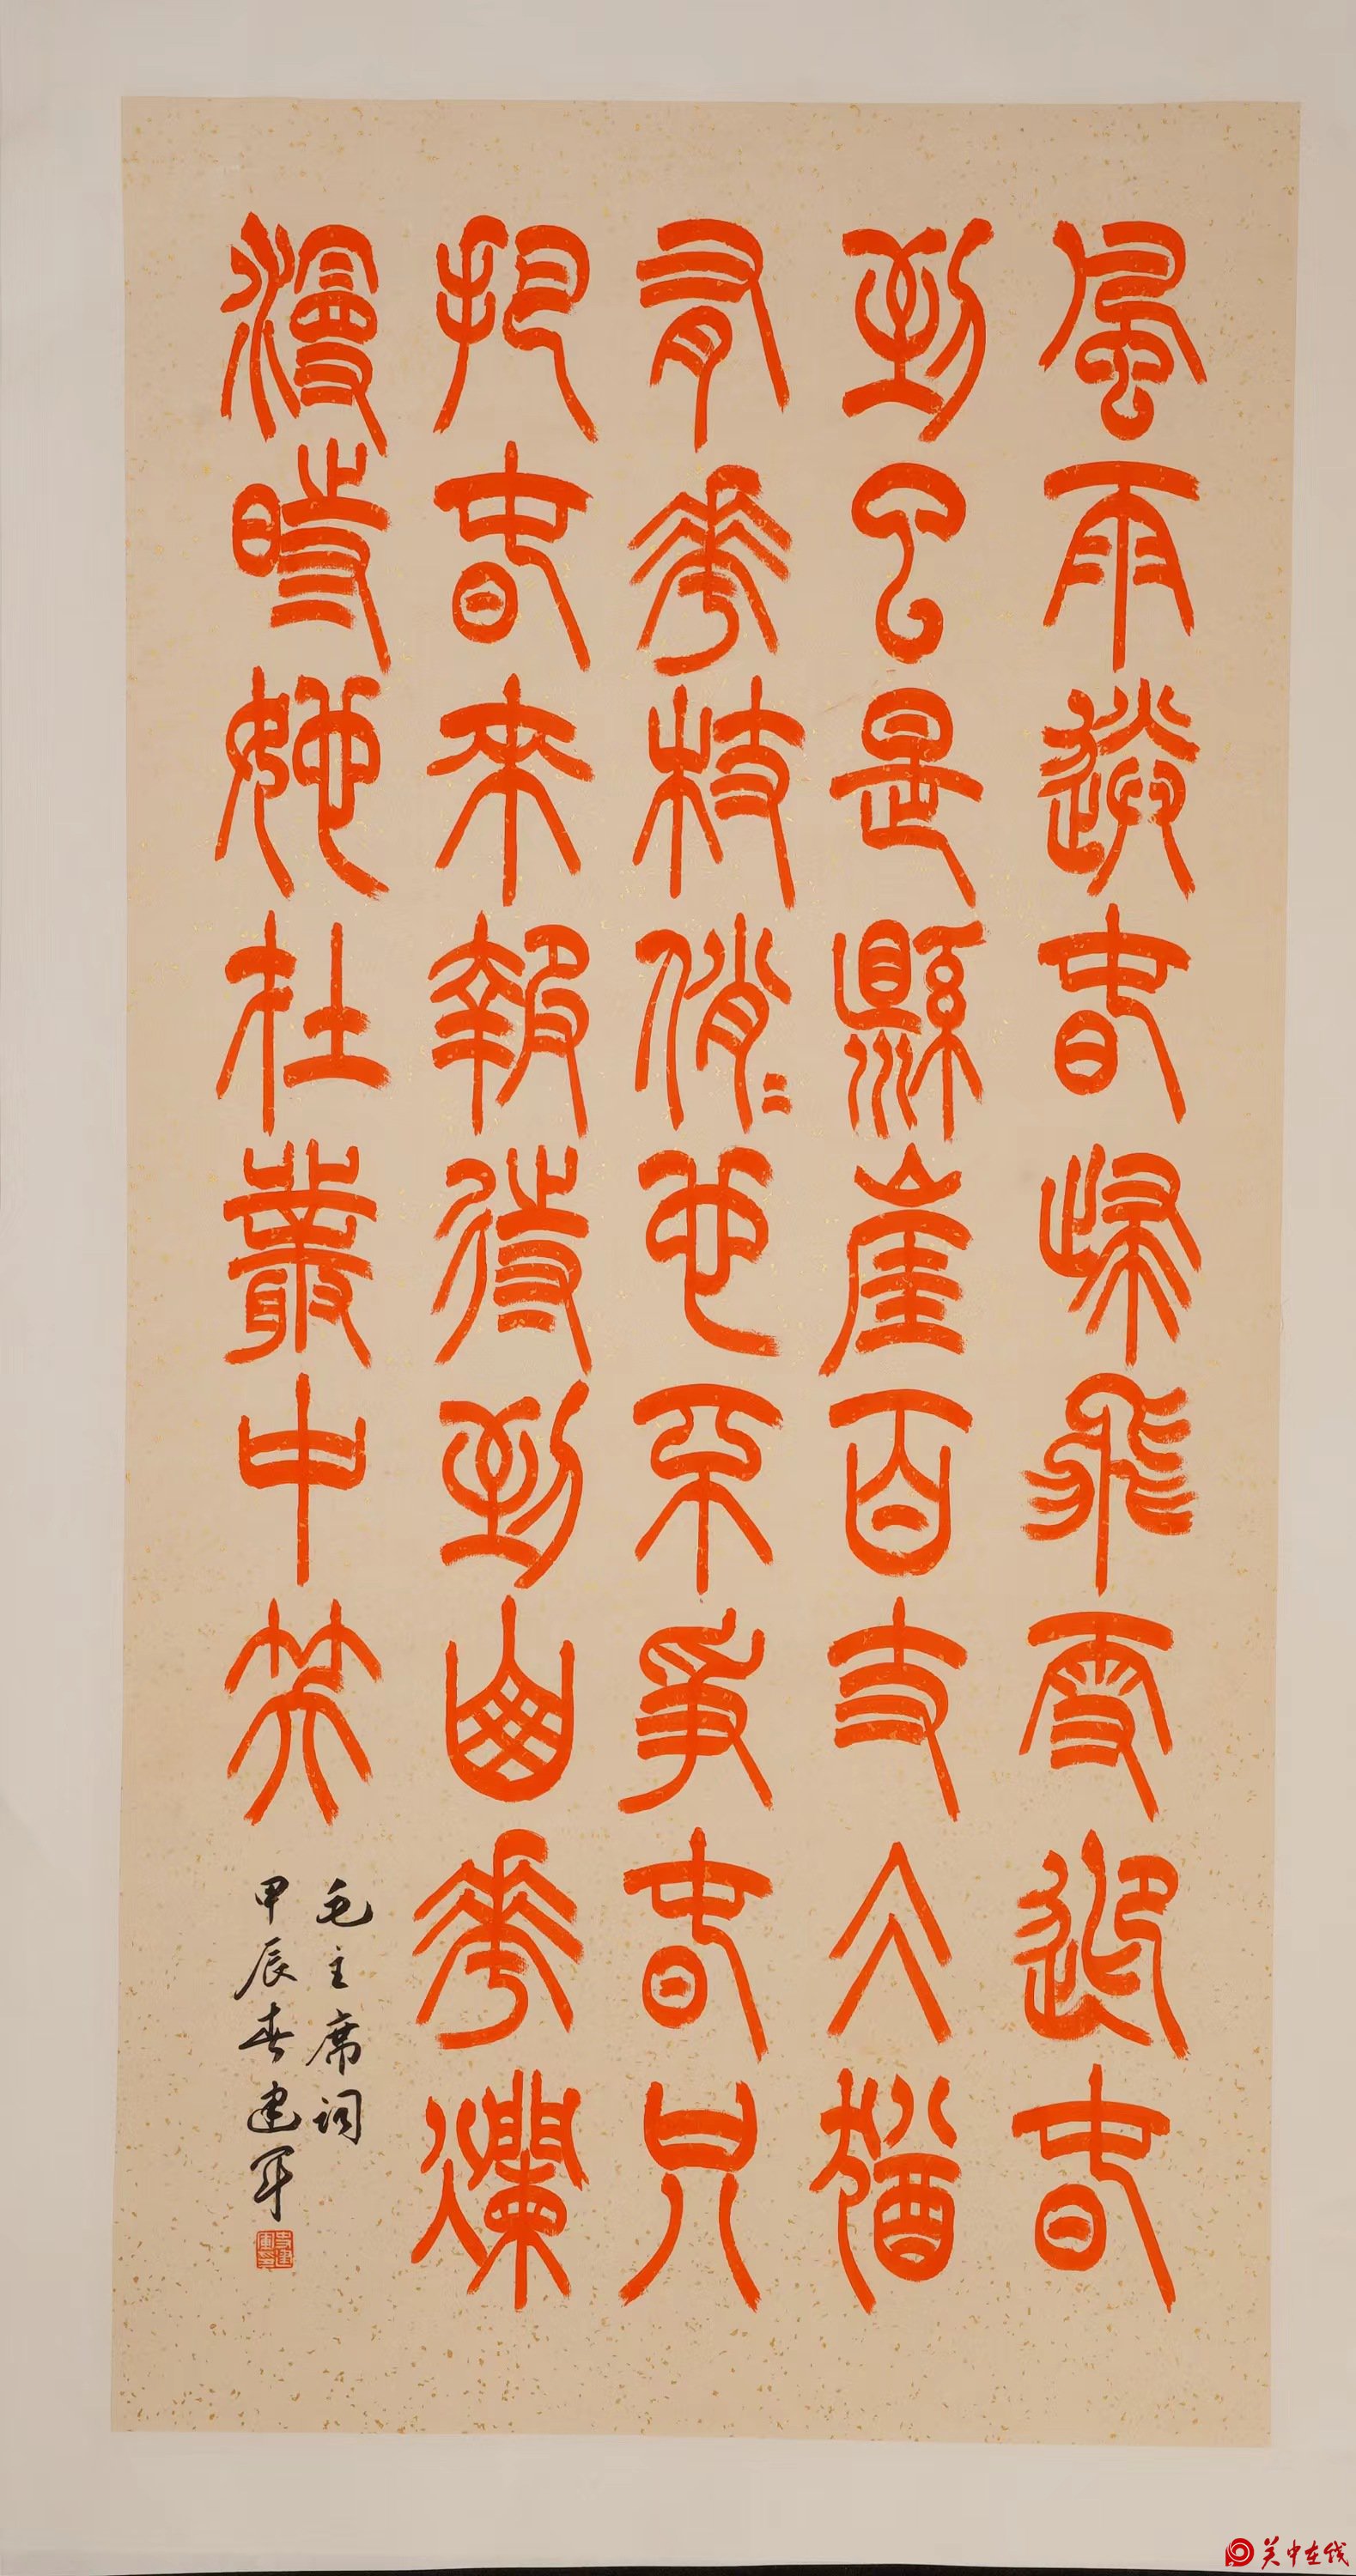 風雨送春歸飛雪迎春
到已是懸崖百丈仌猶
有花枝俏〻也不爭春只
把春來報待到山花爛
漫時她在叢中笑
毛主席词
甲辰春建军
关中在线